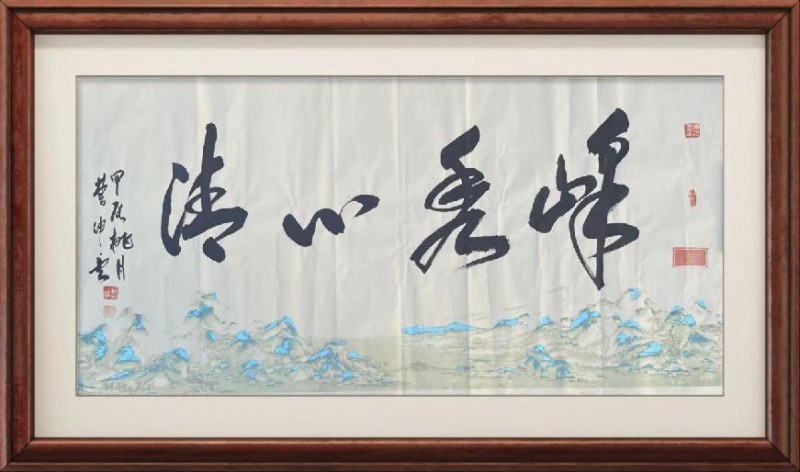 峰秀心清
甲辰桃月